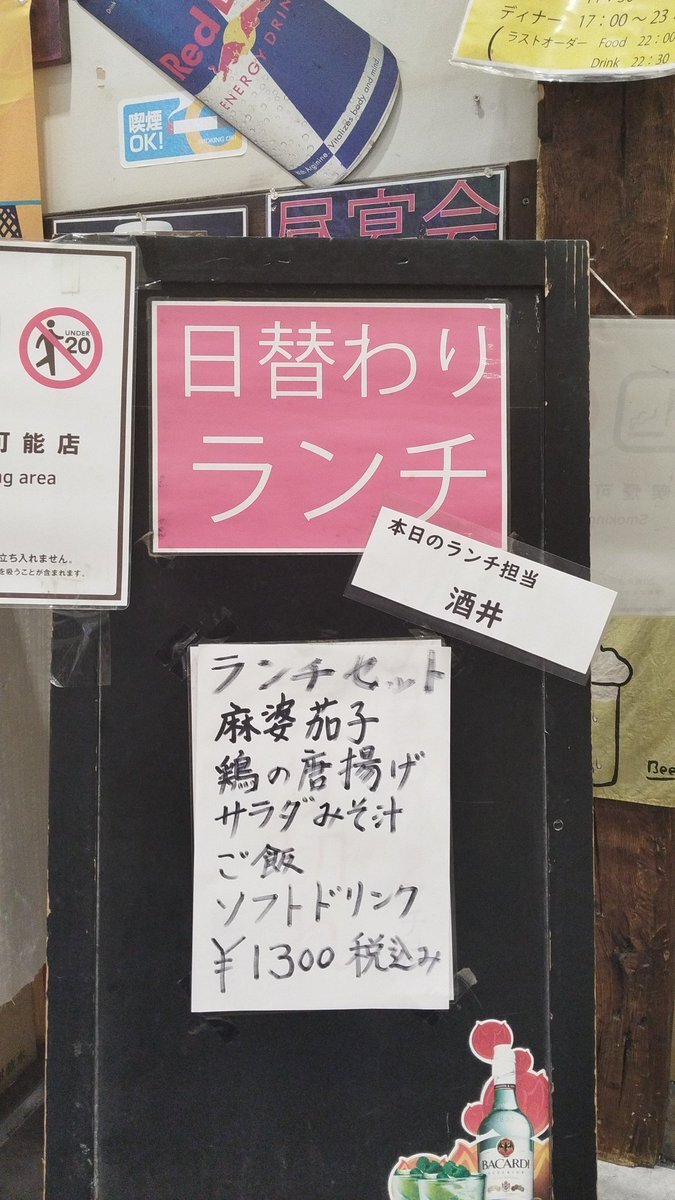 Red Bull
ENERGY DRINK
Vitalizes body and mind.
喫煙
OK!
SMOKING OK!
ディナー 17:00～23
ラストオーダー Food 22:00
Drink 22:30
昼宴会
UNDER
20
可能店
ng area
立ち入れません。
を吸うことが含まれます。
日替わり
ランチ
本日のランチ担当
酒井
ランチセット
麻婆茄子
鶏の唐揚げ
サラダみそ汁
ご飯
ソフトドリンク
¥1300税込み
Bee
BACARDI